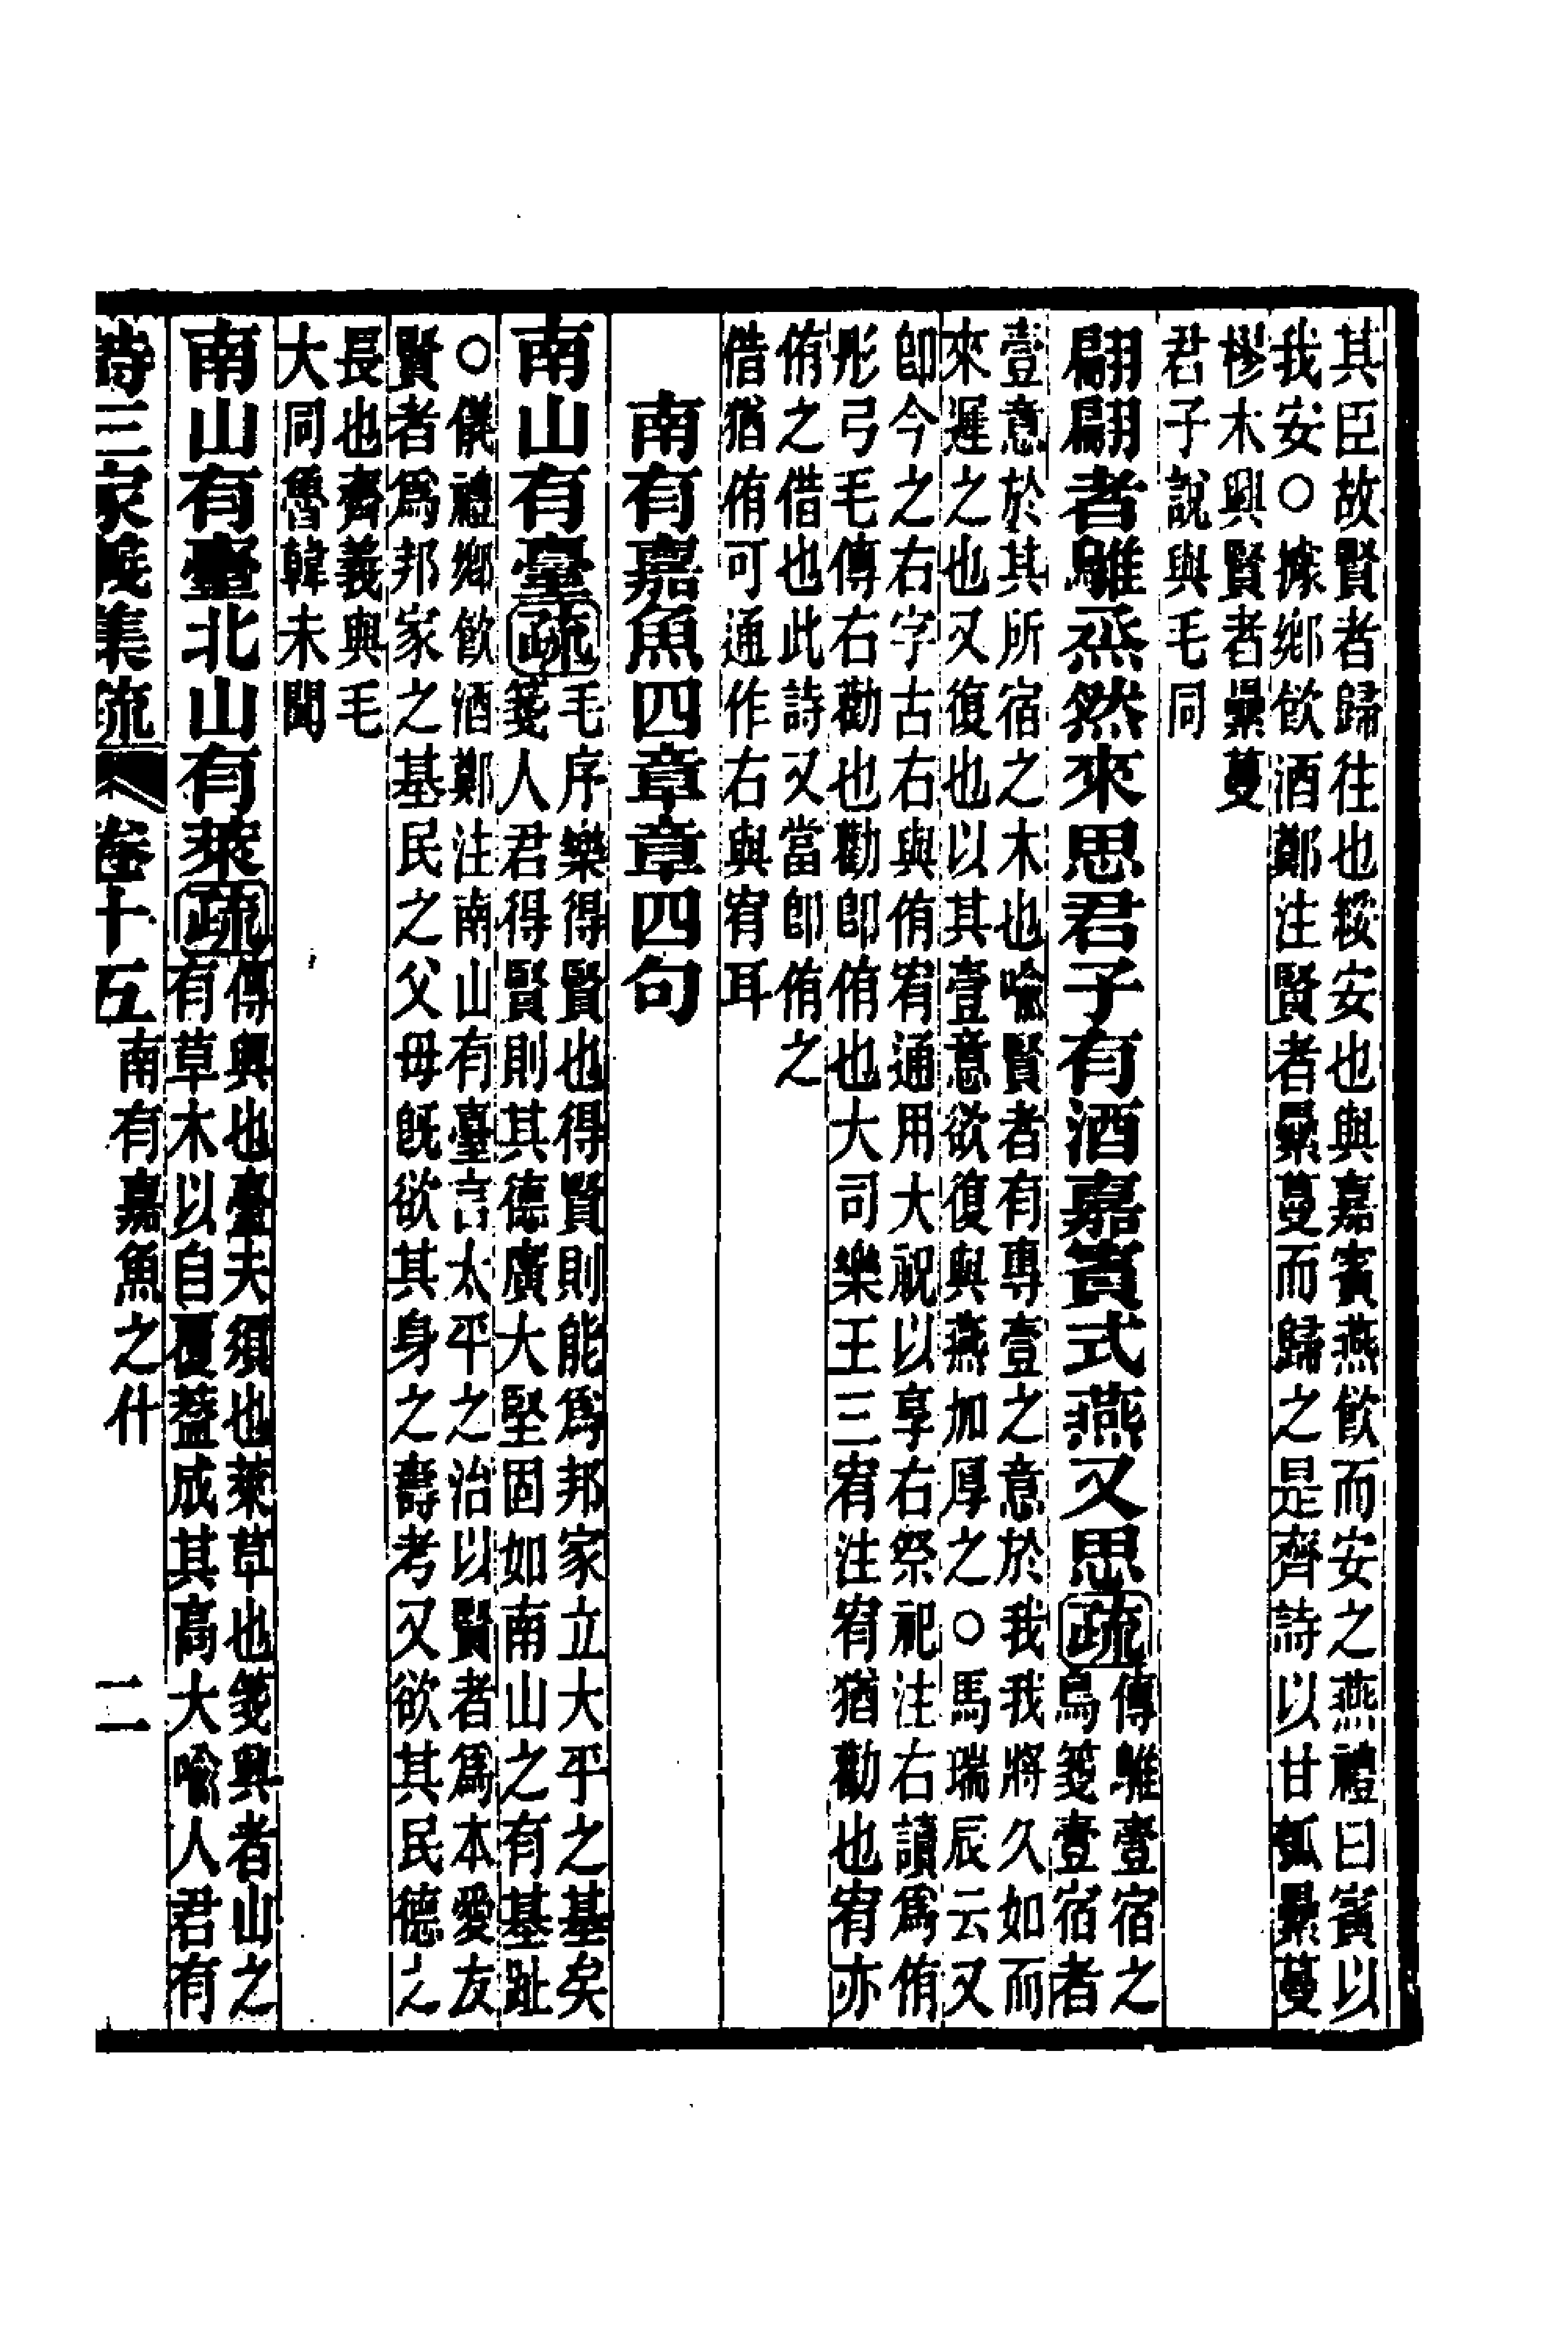 其臣故賢者歸往也綏安也與嘉賓燕飮而安之燕禮曰賓以
我安○據鄉飮酒鄭注賢者纍蔓而歸之是齊詩以甘瓠纍蔓
樛木興賢者纍蔓
君子說與毛同
翩翩者鵻烝然來思君子有酒嘉賓式燕又思疏傳鵻壹宿之
鳥箋壹宿者
壹意於其所宿之木也喩賢者有專壹之意於我我將久如而
來遲之也又復也以其壹意欲復與燕加厚之○馬瑞辰云又
卽今之右字古右與侑宥通用大祝以享右祭祀注右讀爲侑
彤弓毛傳右勸也勸卽侑也大司樂王三宥注宥猶勸也宥亦
侑之借也此詩又當卽侑之
借猶侑可通作右與宥耳
南有嘉魚四章章四句
南山有臺疏毛序樂得賢也得賢則能爲邦家立大平之基矣
箋人君得賢則其德廣大堅固如南山之有基趾
○儀禮鄉飮酒鄭注南山有臺言太平之治以賢者爲本愛友
賢者爲邦家之基民之父母旣欲其身之壽考又欲其民德之
長也齊義與毛
大同魯韓未聞
南山有臺北山有萊疏傳興也臺夫須也萊草也箋興者山之
有草木以自覆蓋成其高大喩人君有
詩三家義集疏 卷十五 南有嘉魚之什 二